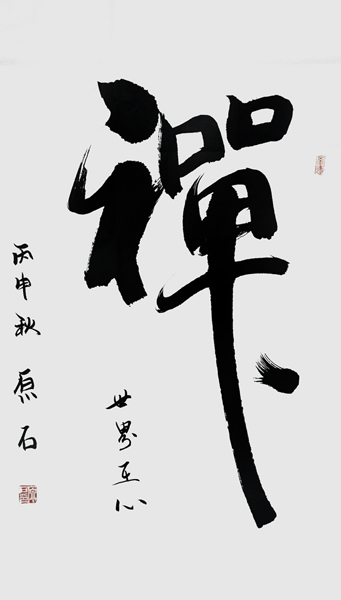 禪
世界在心
丙申秋 原石